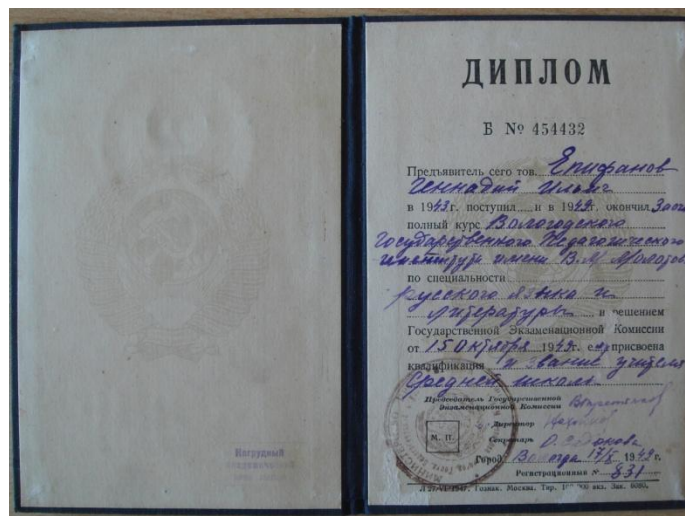 ДИПЛОМ
Б № 454432
Предъявитель сего тов. Епифанов
Геннадий Ильич
в 1943 г. поступил и в 1949 г. окончил
полный курс Вологодского
Государственного Педагогического
института имени В. М. Молотова
по специальности
русского языка и
литературы и решением
Государственной Экзаменационной Комиссии
от 15 октября 1949 г. ему присвоена
квалификация и звание учителя
Средней школы
Председатель Государственной
Экзаменационной Комиссии
Директор
М. П.
Секретарь
Город Вологда 17/X 1949 г.
Регистрационный № 831
Гознак. Москва.
Нагрудный